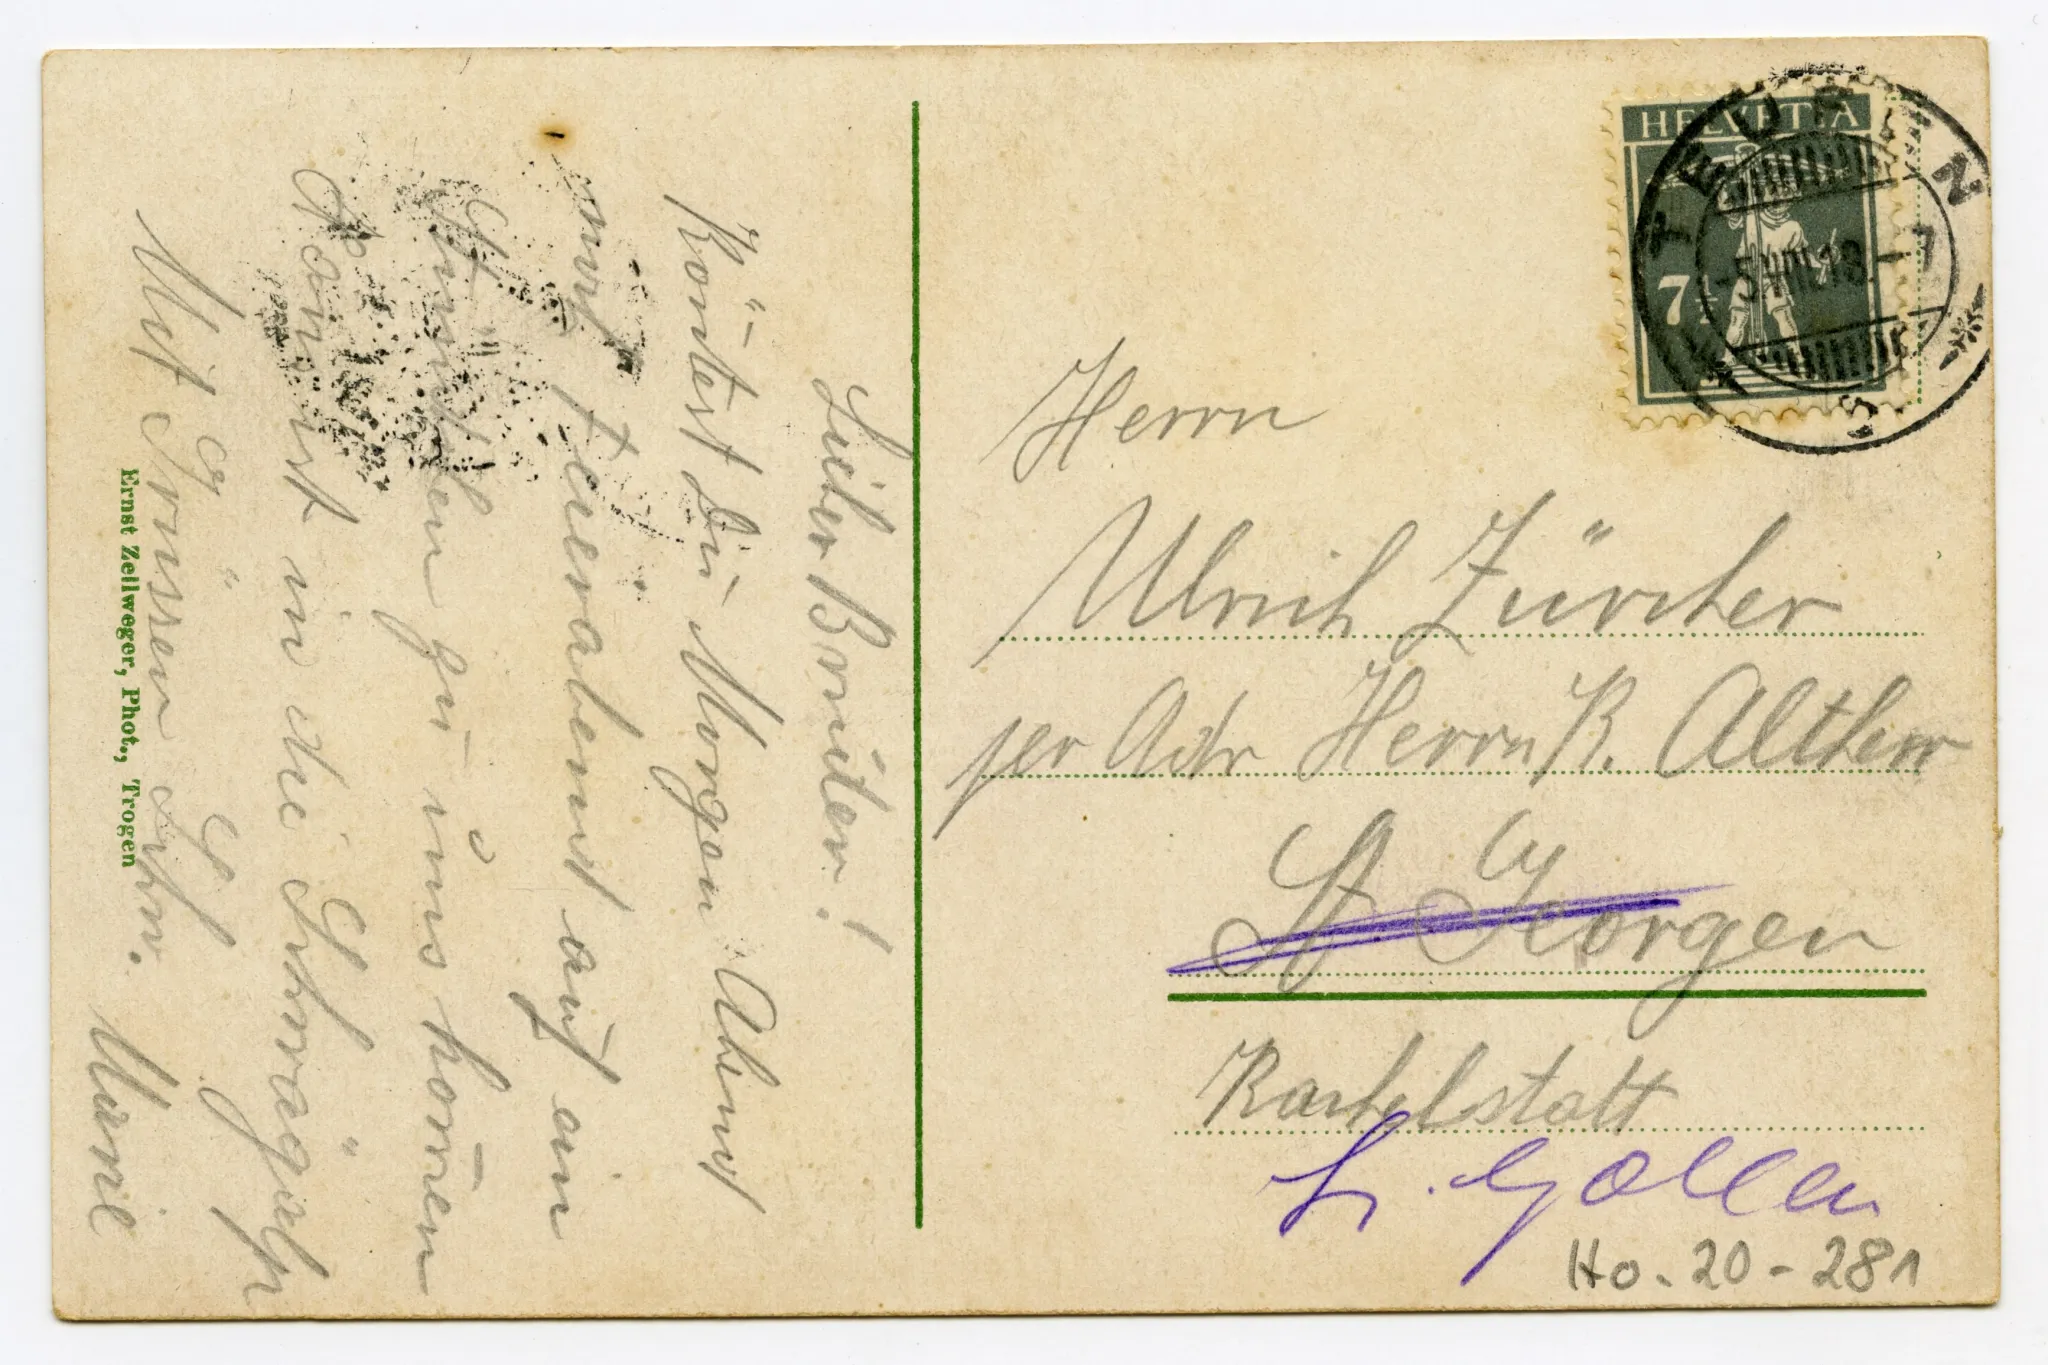 Lieber Bruder!
Köntest Du Morgen Abend
nach Feierabend auf ein
Stündchen zu uns kom̄en
Kom̄st in die Schwägalp
Mit Grüssen Schw. Marie
Ernst Zellweger, Phot., Trogen
HELVETIA
7½
TEUFEN
-5.VIII.18.-7
Herrn
Ulrich Zürcher
per Adr Herrn R. Altherr
St Georgen
Kachelstatt
St. Gallen
Ho-20-281